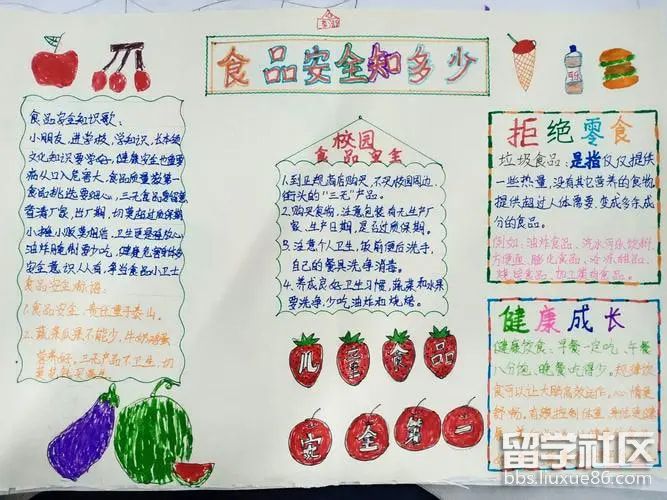 食品安全知多少
食品安全知识歌:
小朋友,进学校,学知识,长本领
文化知识要学好,健康安全也重要
病从口入危害大,食品质量最第一
食品挑选要细心,三无食品
厂家,出厂期,切莫超过质保期
小摊小贩莫相信,卫生
油炸腌制要少吃,健康
安全意识人人有,争当食品小卫士
食品安全标语:
1.食品安全,责任重于泰山。
2.蔬菜瓜果不能少,牛奶鸡蛋
营养好。三无产品不卫生,切
校园
食品安全
1.到正规商店购买,不买校园周边、
街头的“三无”产品。
2.购买食物,注意包装有无生产厂
家、生产日期,是否过质保期。
3.注意个人卫生,饭前便后洗手,
自己的餐具洗净消毒。
4.养成良好卫生习惯,蔬菜和水果
要洗净,少吃油炸和烧烤。
儿童食品
安全第一
拒绝零食
垃圾食品:是指仅仅提供
一些热量,没有其它营养的食物,
提供超过人体需要,变成多余成
分的食品。
例如:油炸食品、汽水可乐饮料
方便面、膨化食品、冷冻甜品、
烧烤食品、加工类肉食品。
健康成长
健康饮食、早餐一定吃、午餐
八分饱、晚餐吃得少。规律饮
食可以让大脑高效运作。心情更
舒畅,有效控制体重,
留学社区
bbs.liuxue86.com